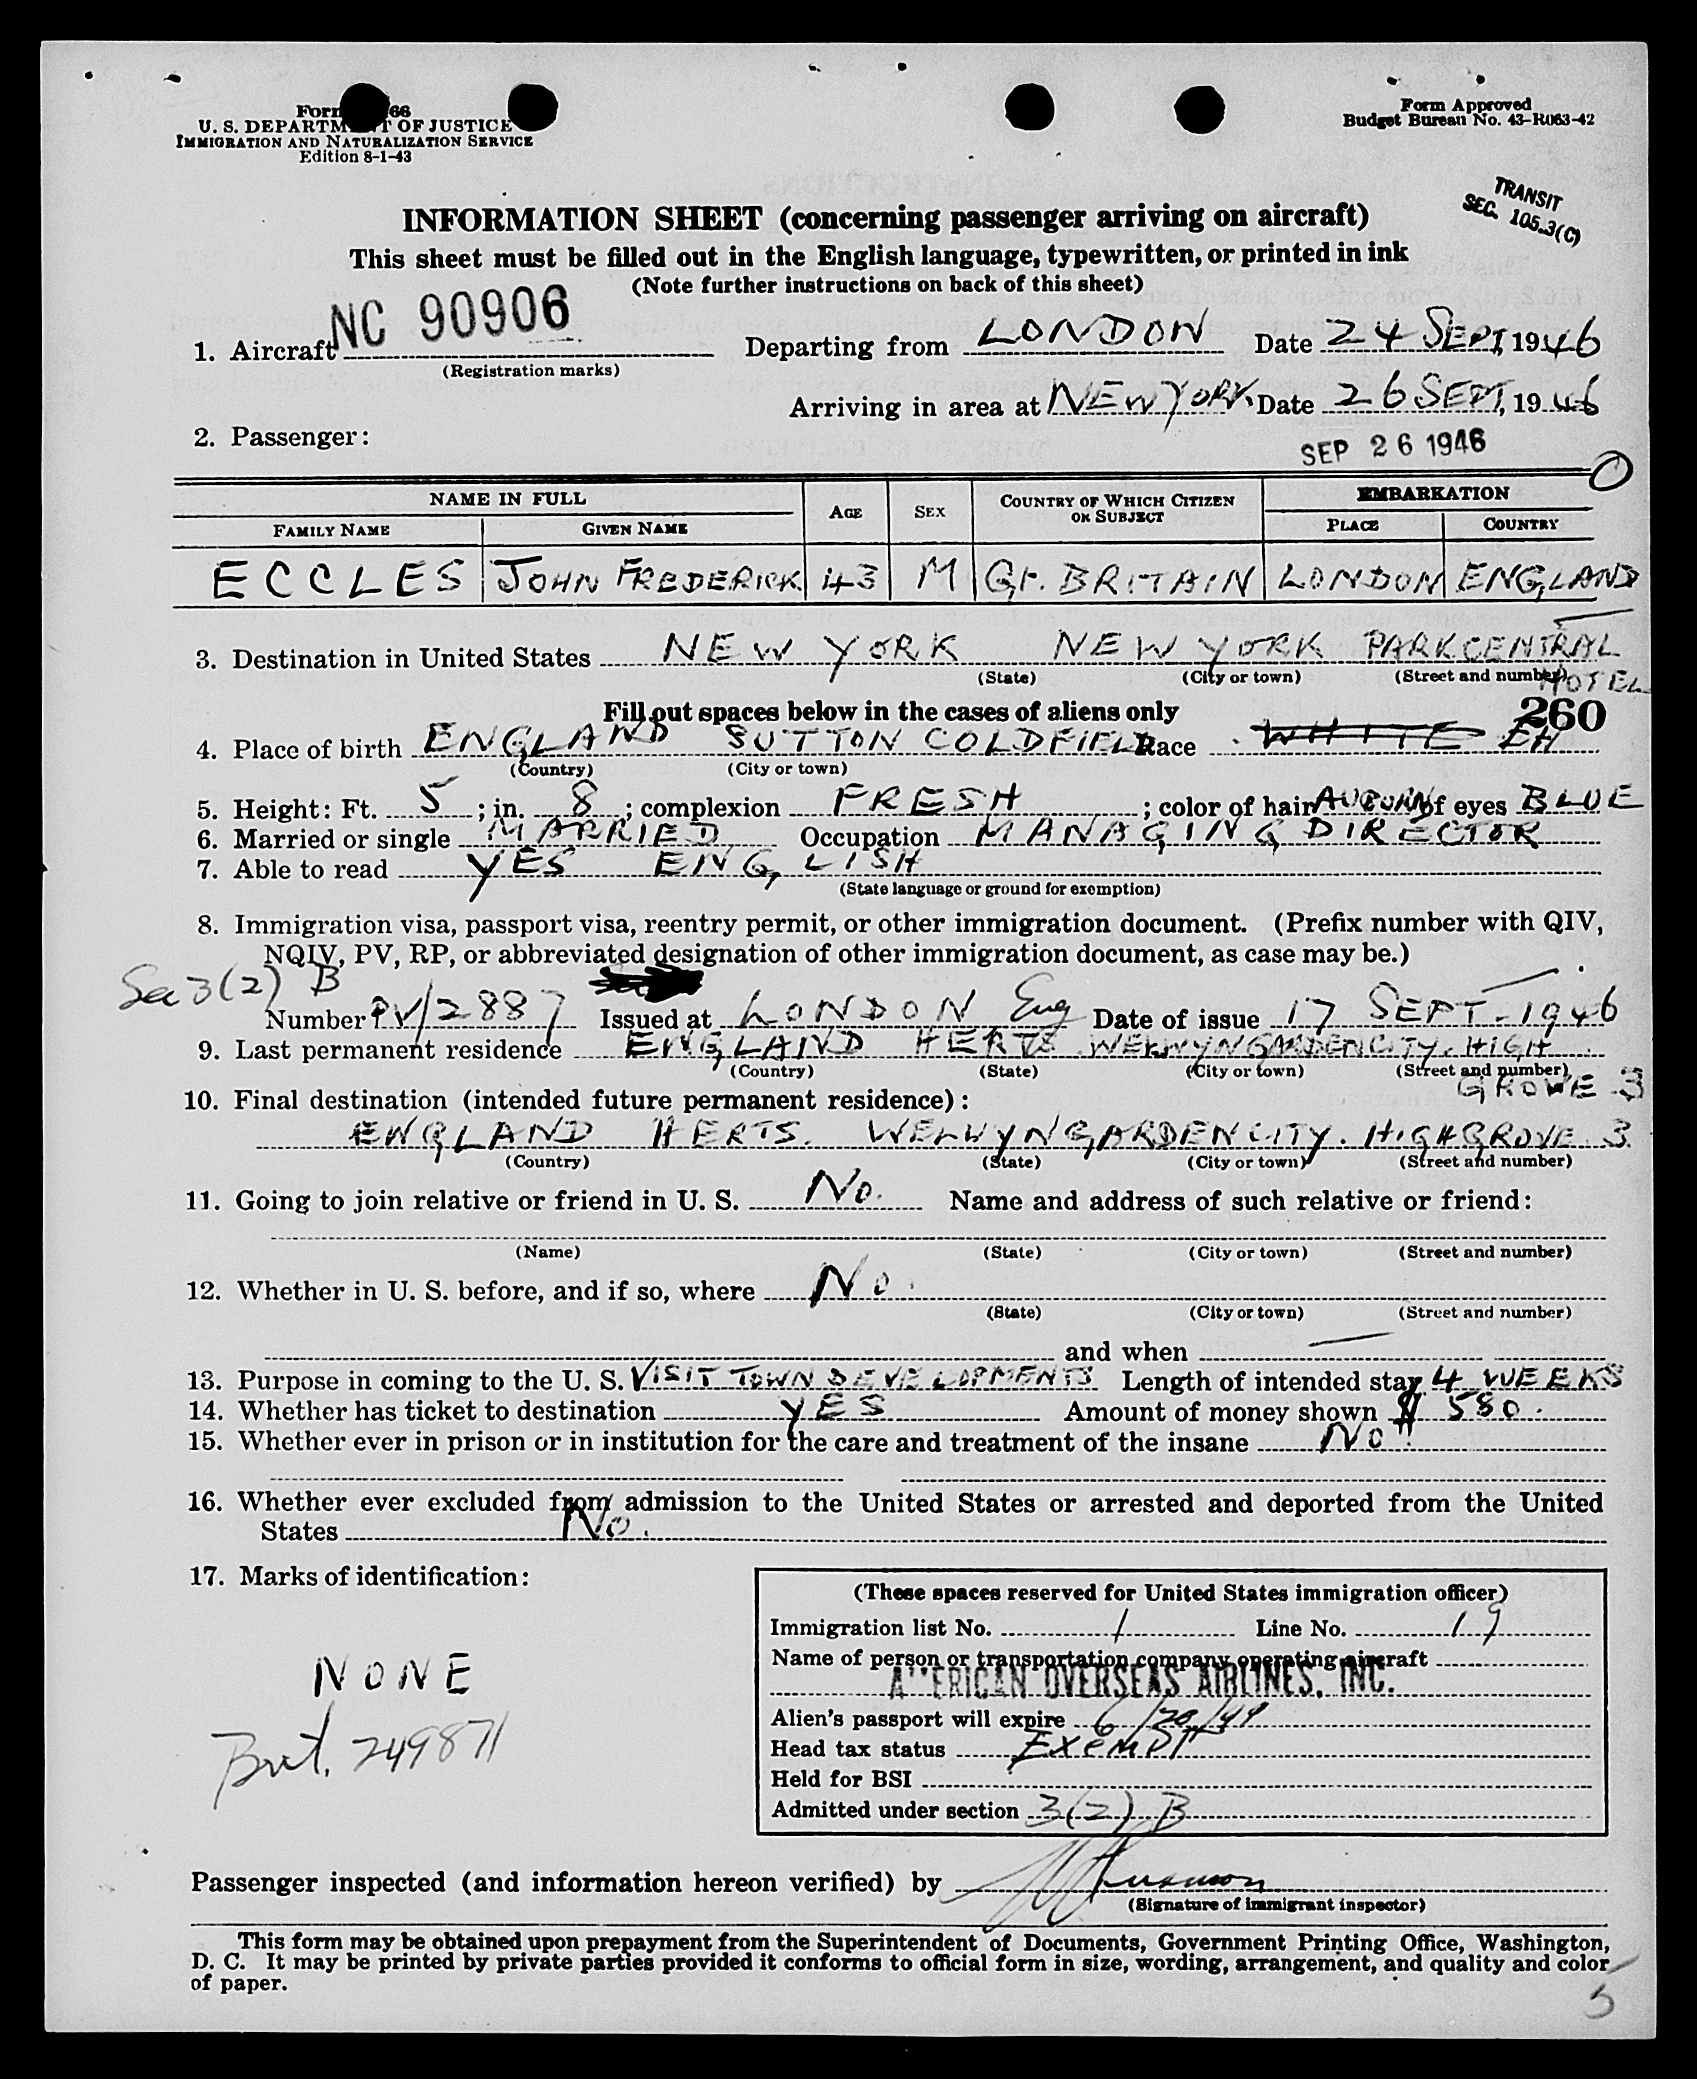 Form 66
U. S. DEPARTMENT OF JUSTICE
IMMIGRATION AND NATURALIZATION SERVICE
Edition 8-1-43
Form Approved
Budget Bureau No. 43-R063-42
TRANSIT
SEC. 105.3(C)
INFORMATION SHEET (concerning passenger arriving on aircraft)
This sheet must be filled out in the English language, typewritten, or printed in ink
(Note further instructions on back of this sheet)
1. Aircraft NC 90906 Departing from LONDON Date 24 SEPT, 1946
(Registration marks)
Arriving in area at NEW YORK. Date 26 SEPT, 1946
2. Passenger:
SEP 26 1946
NAME IN FULL AGE SEX COUNTRY OF WHICH CITIZEN OR SUBJECT EMBARKATION
FAMILY NAME GIVEN NAME PLACE COUNTRY
ECCLES JOHN FREDERICK 43 M Gt. BRITAIN LONDON ENGLAND
3. Destination in United States NEW YORK NEW YORK PARK CENTRAL
(State) (City or town) (Street and number) HOTEL
Fill out spaces below in the cases of aliens only 260
4. Place of birth ENGLAND SUTTON COLDFIELD Race WHITE EH
(Country) (City or town)
5. Height: Ft. 5 ; in. 8 ; complexion FRESH ; color of hair AUBURN of eyes BLUE
6. Married or single MARRIED Occupation MANAGING DIRECTOR
7. Able to read YES ENGLISH
(State language or ground for exemption)
8. Immigration visa, passport visa, reentry permit, or other immigration document. (Prefix number with QIV,
NQIV, PV, RP, or abbreviated designation of other immigration document, as case may be.)
Sec 3(2) B
Number PV/2887 Issued at LONDON Eng Date of issue 17 SEPT. 1946
9. Last permanent residence ENGLAND HERTS WELWYN GARDEN CITY. HIGH
(Country) (State) (City or town) (Street and number)
GROVE 3
10. Final destination (intended future permanent residence):
ENGLAND HERTS. WELWYN GARDEN CITY. HIGHGROVE 3.
(Country) (State) (City or town) (Street and number)
11. Going to join relative or friend in U. S. No. Name and address of such relative or friend:
(Name) (State) (City or town) (Street and number)
12. Whether in U. S. before, and if so, where No.
(State) (City or town) (Street and number)
and when —
13. Purpose in coming to the U. S. VISIT TOWN DEVELOPMENTS Length of intended stay 4 WEEKS
14. Whether has ticket to destination YES Amount of money shown $ 580.
15. Whether ever in prison or in institution for the care and treatment of the insane No.
16. Whether ever excluded from admission to the United States or arrested and deported from the United
States No.
17. Marks of identification:
NONE
Brit. 249871
(These spaces reserved for United States immigration officer)
Immigration list No. 1 Line No. 19
Name of person or transportation company operating aircraft
AMERICAN OVERSEAS AIRLINES, INC.
Alien's passport will expire 6/20/49
Head tax status Exempt
Held for BSI
Admitted under section 3(2) B
Passenger inspected (and information hereon verified) by
(Signature of immigrant inspector)
This form may be obtained upon prepayment from the Superintendent of Documents, Government Printing Office, Washington,
D. C. It may be printed by private parties provided it conforms to official form in size, wording, arrangement, and quality and color
of paper.
5